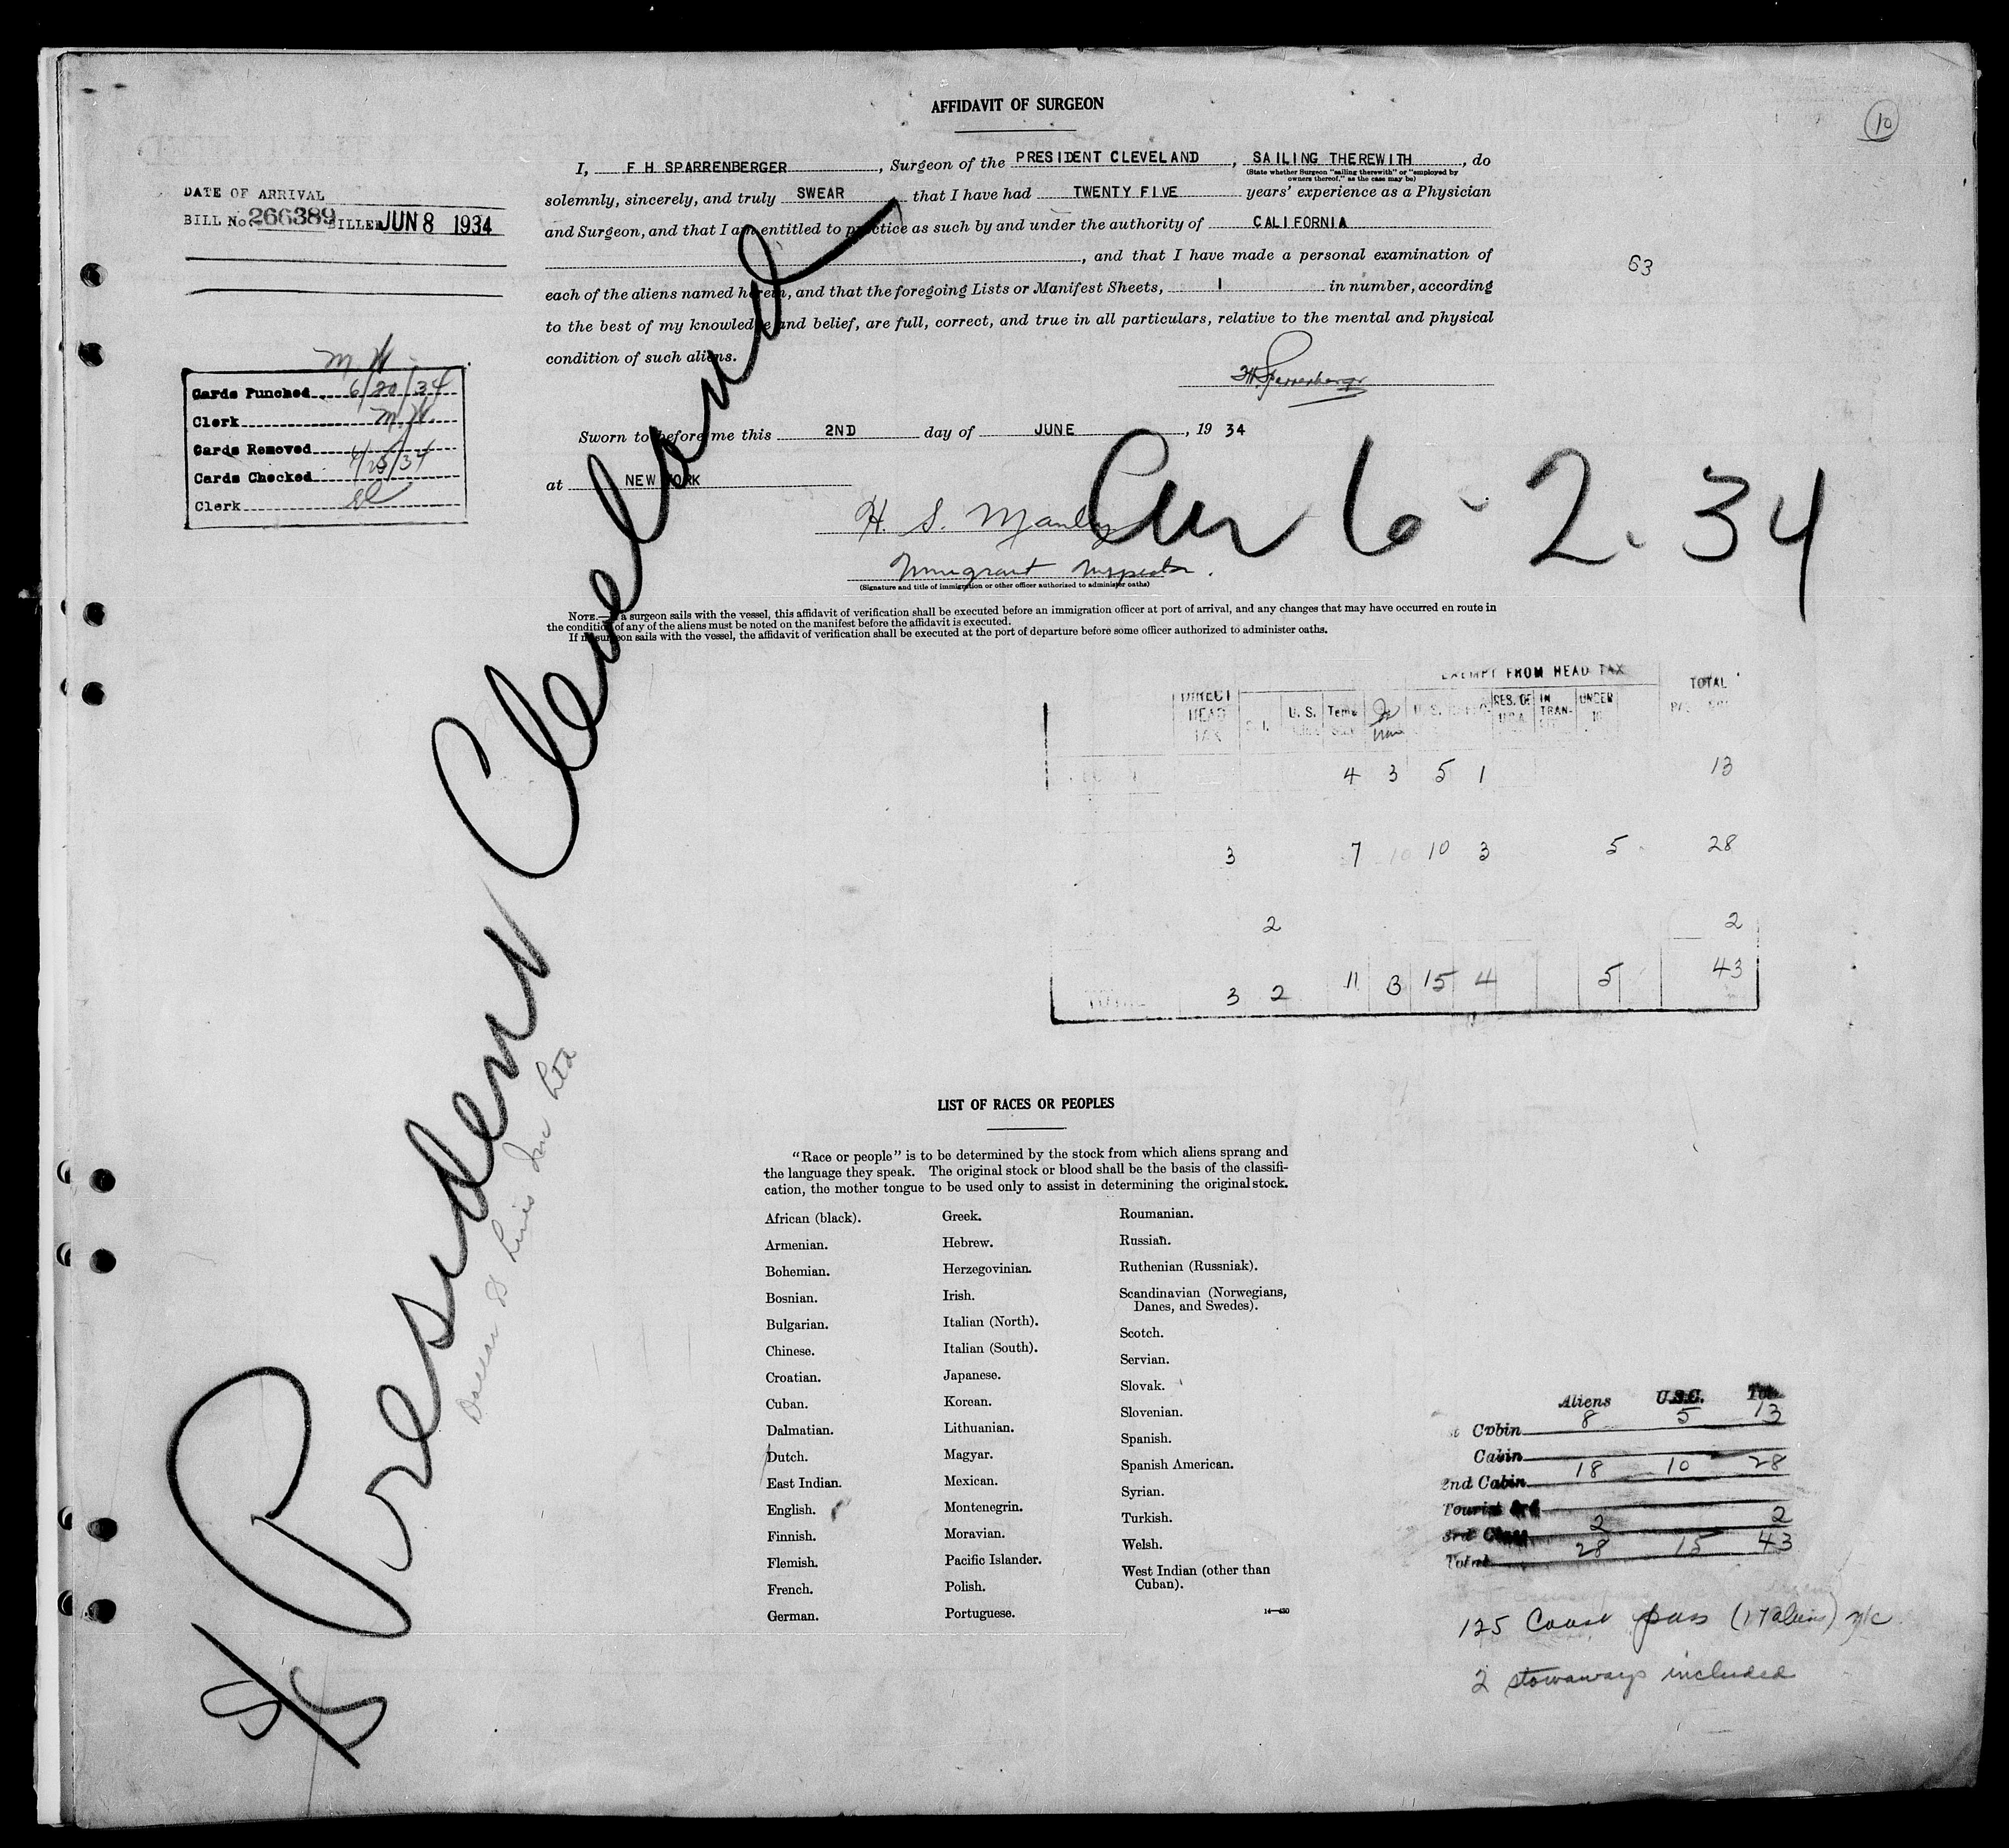 AFFIDAVIT OF SURGEON
10
I, F H SPARRENBERGER, Surgeon of the PRESIDENT CLEVELAND, SAILING THEREWITH, do
(State whether Surgeon "sailing therewith" or "employed by owners thereof," as the case may be)
solemnly, sincerely, and truly SWEAR that I have had TWENTY FIVE years' experience as a Physician
and Surgeon, and that I am entitled to practice as such by and under the authority of CALIFORNIA
, and that I have made a personal examination of
each of the aliens named herein, and that the foregoing Lists or Manifest Sheets, 1 in number, according
to the best of my knowledge and belief, are full, correct, and true in all particulars, relative to the mental and physical
condition of such aliens.
63
DATE OF ARRIVAL
BILL No. 266389 BILLED JUN 8 1934
M.W.
Cards Punched 6/20/34
Clerk M.W.
Cards Removed
Cards Checked 6/25/34
Clerk
FH Sparrenberger
Sworn to before me this 2ND day of JUNE, 19 34
at NEW YORK
H. S. Manley
Immigrant Inspector.
(Signature and title of immigration or other officer authorized to administer oaths)
Arr 6-2-34
NOTE.—If a surgeon sails with the vessel, this affidavit of verification shall be executed before an immigration officer at port of arrival, and any changes that may have occurred en route in
the condition of any of the aliens must be noted on the manifest before the affidavit is executed.
If no surgeon sails with the vessel, the affidavit of verification shall be executed at the port of departure before some officer authorized to administer oaths.
SS President Cleveland
Dollar SS Lines Inc Ltd
EXEMPT FROM HEAD TAX
DIRECT HEAD TAX U. S. Temp RES. OF U.S.A. IN TRAN- UNDER 16 TOTAL
4 3 5 1 13
3 7 10 3 5 28
2 2
TOTAL 3 2 11 3 15 4 5 43
LIST OF RACES OR PEOPLES
"Race or people" is to be determined by the stock from which aliens sprang and
the language they speak. The original stock or blood shall be the basis of the classifi-
cation, the mother tongue to be used only to assist in determining the original stock.
African (black).
Armenian.
Bohemian.
Bosnian.
Bulgarian.
Chinese.
Croatian.
Cuban.
Dalmatian.
Dutch.
East Indian.
English.
Finnish.
Flemish.
French.
German.
Greek.
Hebrew.
Herzegovinian.
Irish.
Italian (North).
Italian (South).
Japanese.
Korean.
Lithuanian.
Magyar.
Mexican.
Montenegrin.
Moravian.
Pacific Islander.
Polish.
Portuguese.
Roumanian.
Russian.
Ruthenian (Russniak).
Scandinavian (Norwegians,
Danes, and Swedes).
Scotch.
Servian.
Slovak.
Slovenian.
Spanish.
Spanish American.
Syrian.
Turkish.
Welsh.
West Indian (other than
Cuban).
14—430
Aliens U.S.C. Tot
Cabin 8 5 13
Cabin
2nd Cabin 18 10 28
Tourist 3rd
3rd Class 2 2
Total 28 15 43
125 Coast pass (17 aliens) n/c
2 stowaways included